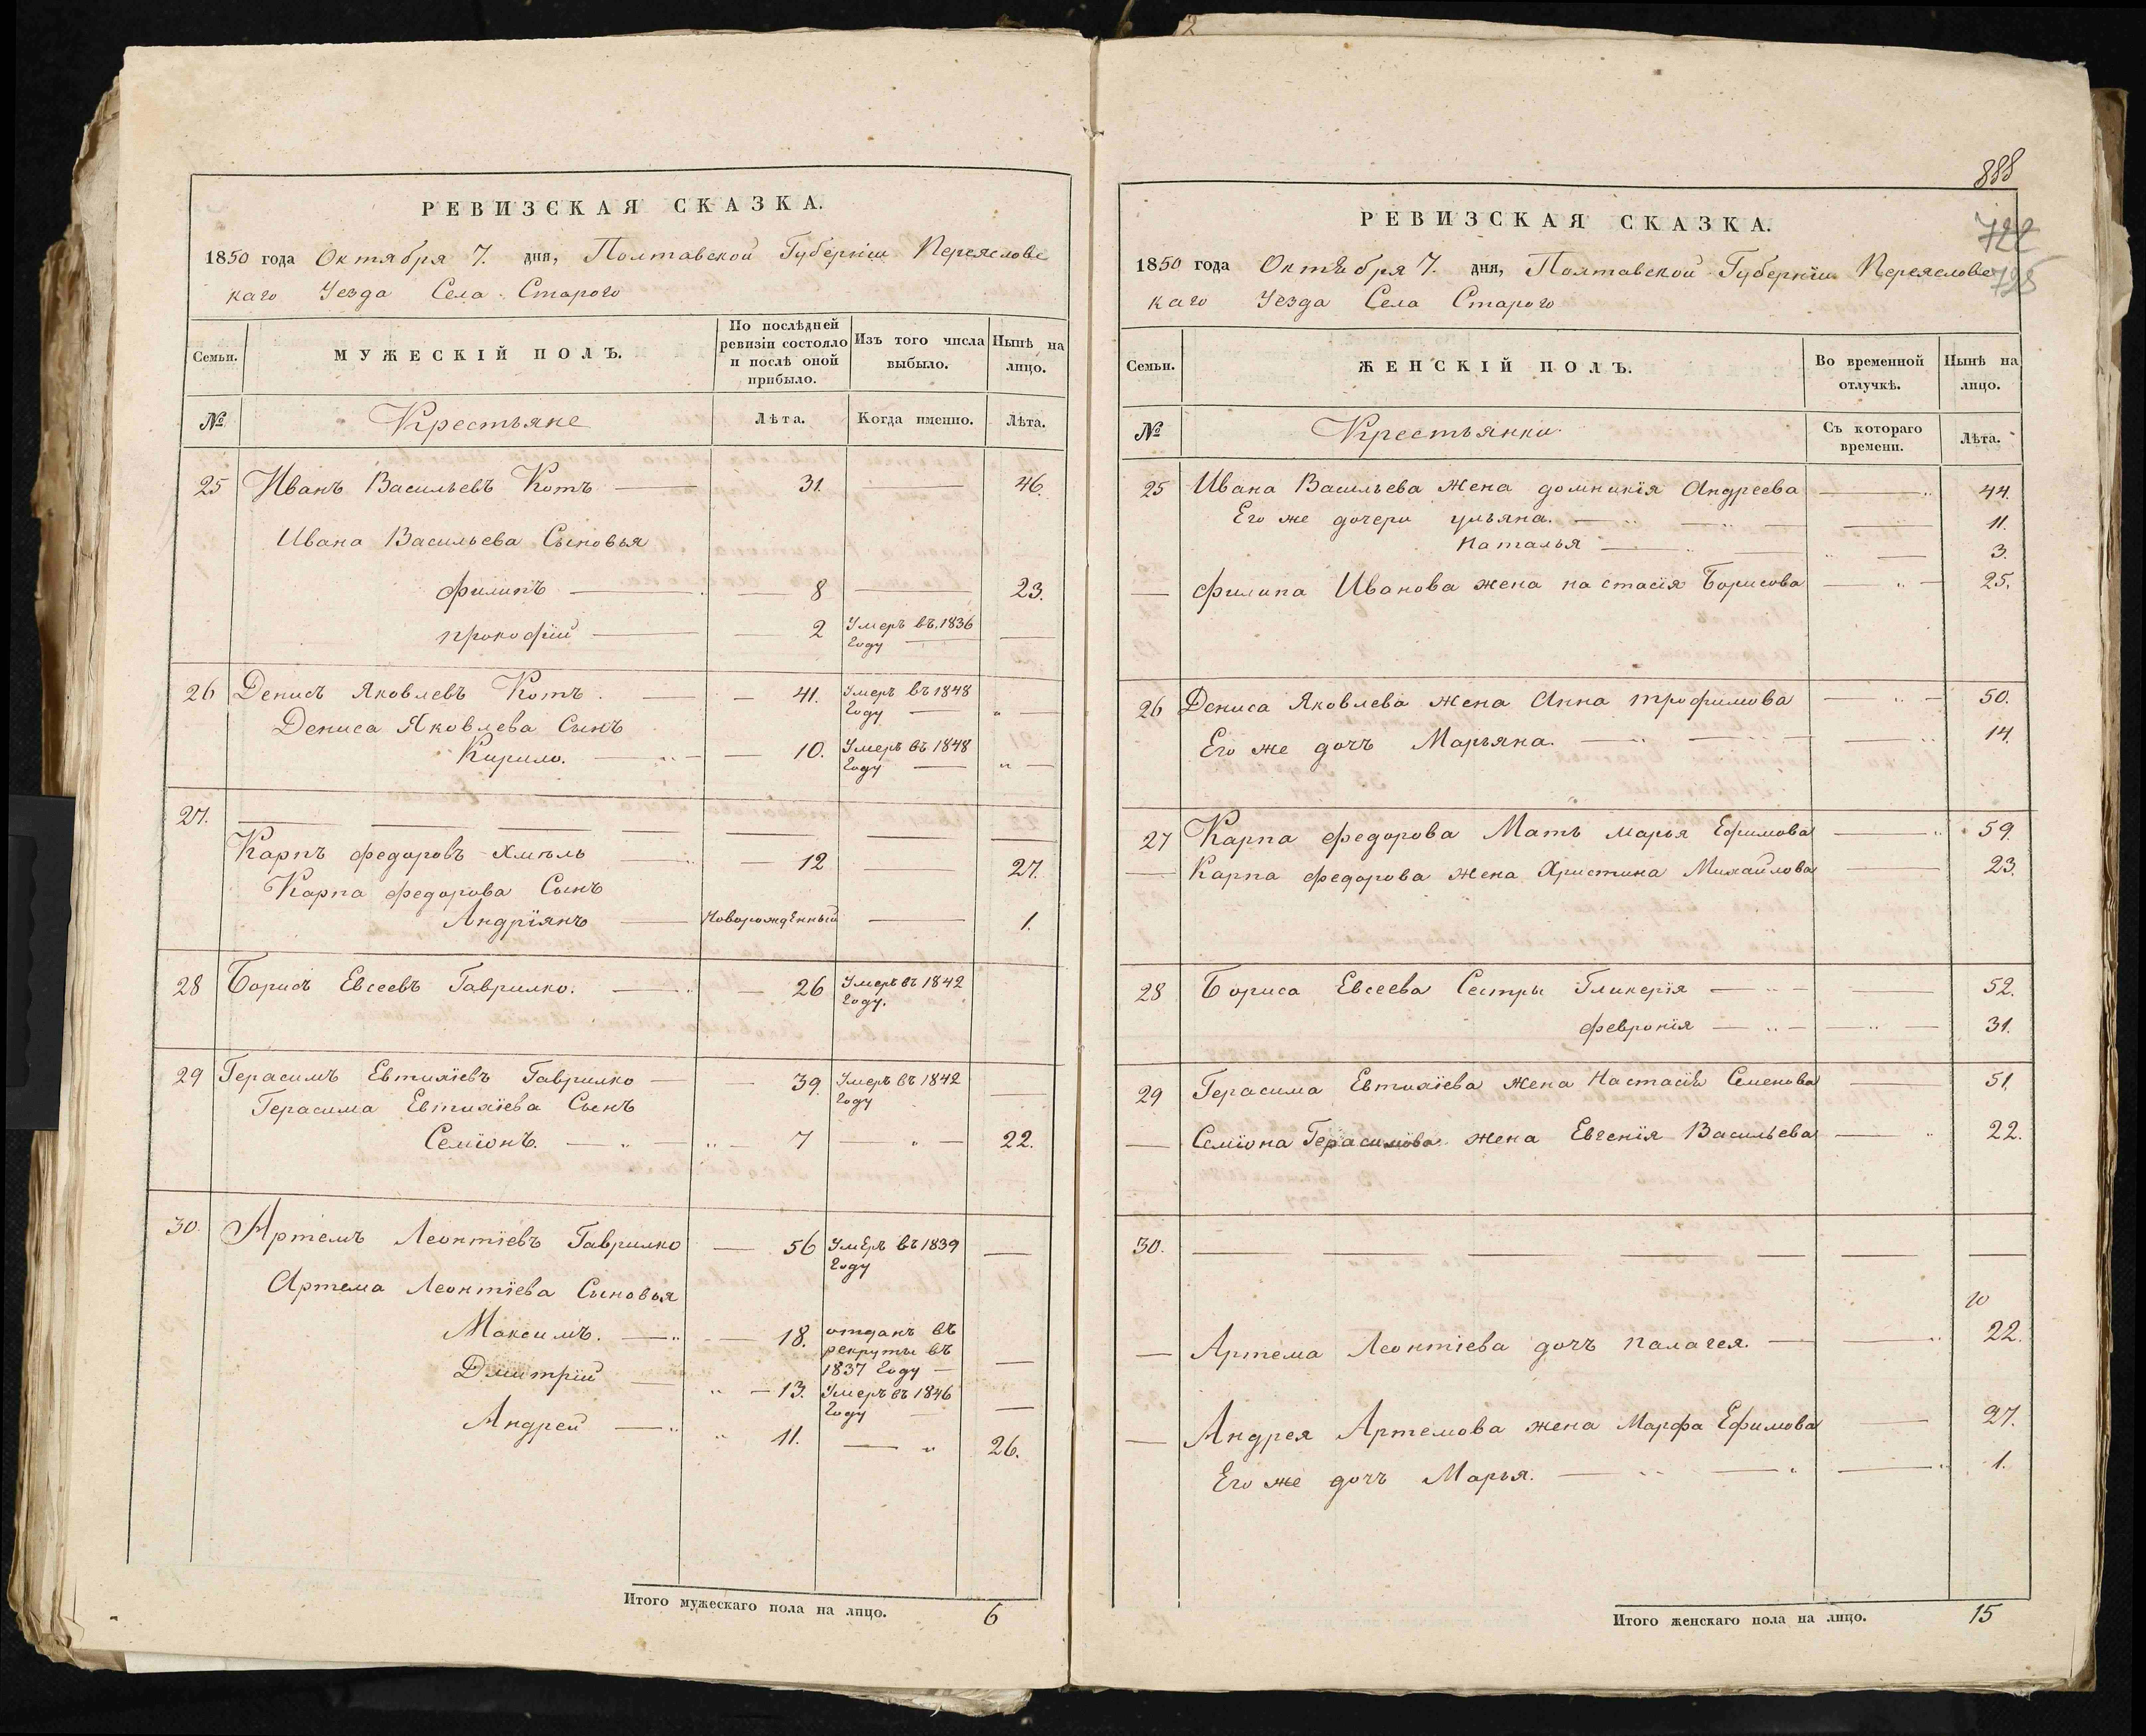 РЕВИЗСКАЯ СКАЗКА.
1850 года Октября 7. дня, Полтавской Губерніи Переяславс
каго Уезда Села Старого
Семьи.
МУЖЕСКІЙ ПОЛЪ.
По послѣдней ревизіи состояло и послѣ оной прибыло.
Изъ того числа выбыло.
Нынѣ на лицо.
№ Крестьяне Лѣта. Когда именно. Лѣта.
25 Иванъ Васильевъ Котъ 31. 46.
Ивана Васильева Сыновья
филипъ 8 23.
прокофій 2 Умеръ въ 1836 Году
26 Денисъ Яковлевъ Котъ 41. Умеръ въ 1848 Году
Дениса Яковлева Сынъ
Кирило. 10. Умеръ въ 1848 Году
27.
Карпъ федоровъ Хмѣль 12 27.
Карпа федорова Сынъ
Андріянъ Новорожденный 1.
28 Борисъ Евсеевъ Гаврилко. 26 Умеръ въ 1842 Году.
29 Герасимъ Евтихіевъ Гаврилко 39. Умеръ въ 1842 Году
Герасима Евтихіева Сынъ
Семіонъ. 7 22.
30. Артемъ Леонтіевъ Гаврилко 56 Умеръ въ 1839 Году
Артема Леонтіева Сыновья
Максимъ. 18. отданъ въ рекруты въ 1837 Году
Дмитрій 13. Умеръ въ 1846 Году
Андрей 11. 26.
Итого мужескаго пола на лицо. 6
888
722
РЕВИЗСКАЯ СКАЗКА.
1850 года Октября 7. дня, Полтавской Губерніи Переяславс
каго Уезда Села Старого
Семьи.
ЖЕНСКІЙ ПОЛЪ.
Во временной отлучкѣ.
Нынѣ на лицо.
№ Крестьянки Съ котораго времени. Лѣта.
25 Ивана Васильева жена домникія Андреева 44.
Его же дочери ульяна. 11.
Наталья 3.
филипа Иванова жена настасія Борисова 25.
26 Дениса Яковлева жена Анна трофимова 50.
Его же дочъ Марьяна. 14.
27 Карпа федорова Мать марья Ефимова 59.
Карпа федорова жена Христина Михайлова 23.
28 Бориса Евсеева Сестры Гликерія 52.
февронія 31.
29 Герасима Евтихіева жена Настасія Семенова 51.
Семіона Герасимова жена Евгенія Васильева 22.
30.
Артема Леонтіева дочъ палагея. 22.
Андрея Артемова жена Марфа Ефимова 27.
Его же дочъ Марья. 1.
Итого женскаго пола на лицо. 15